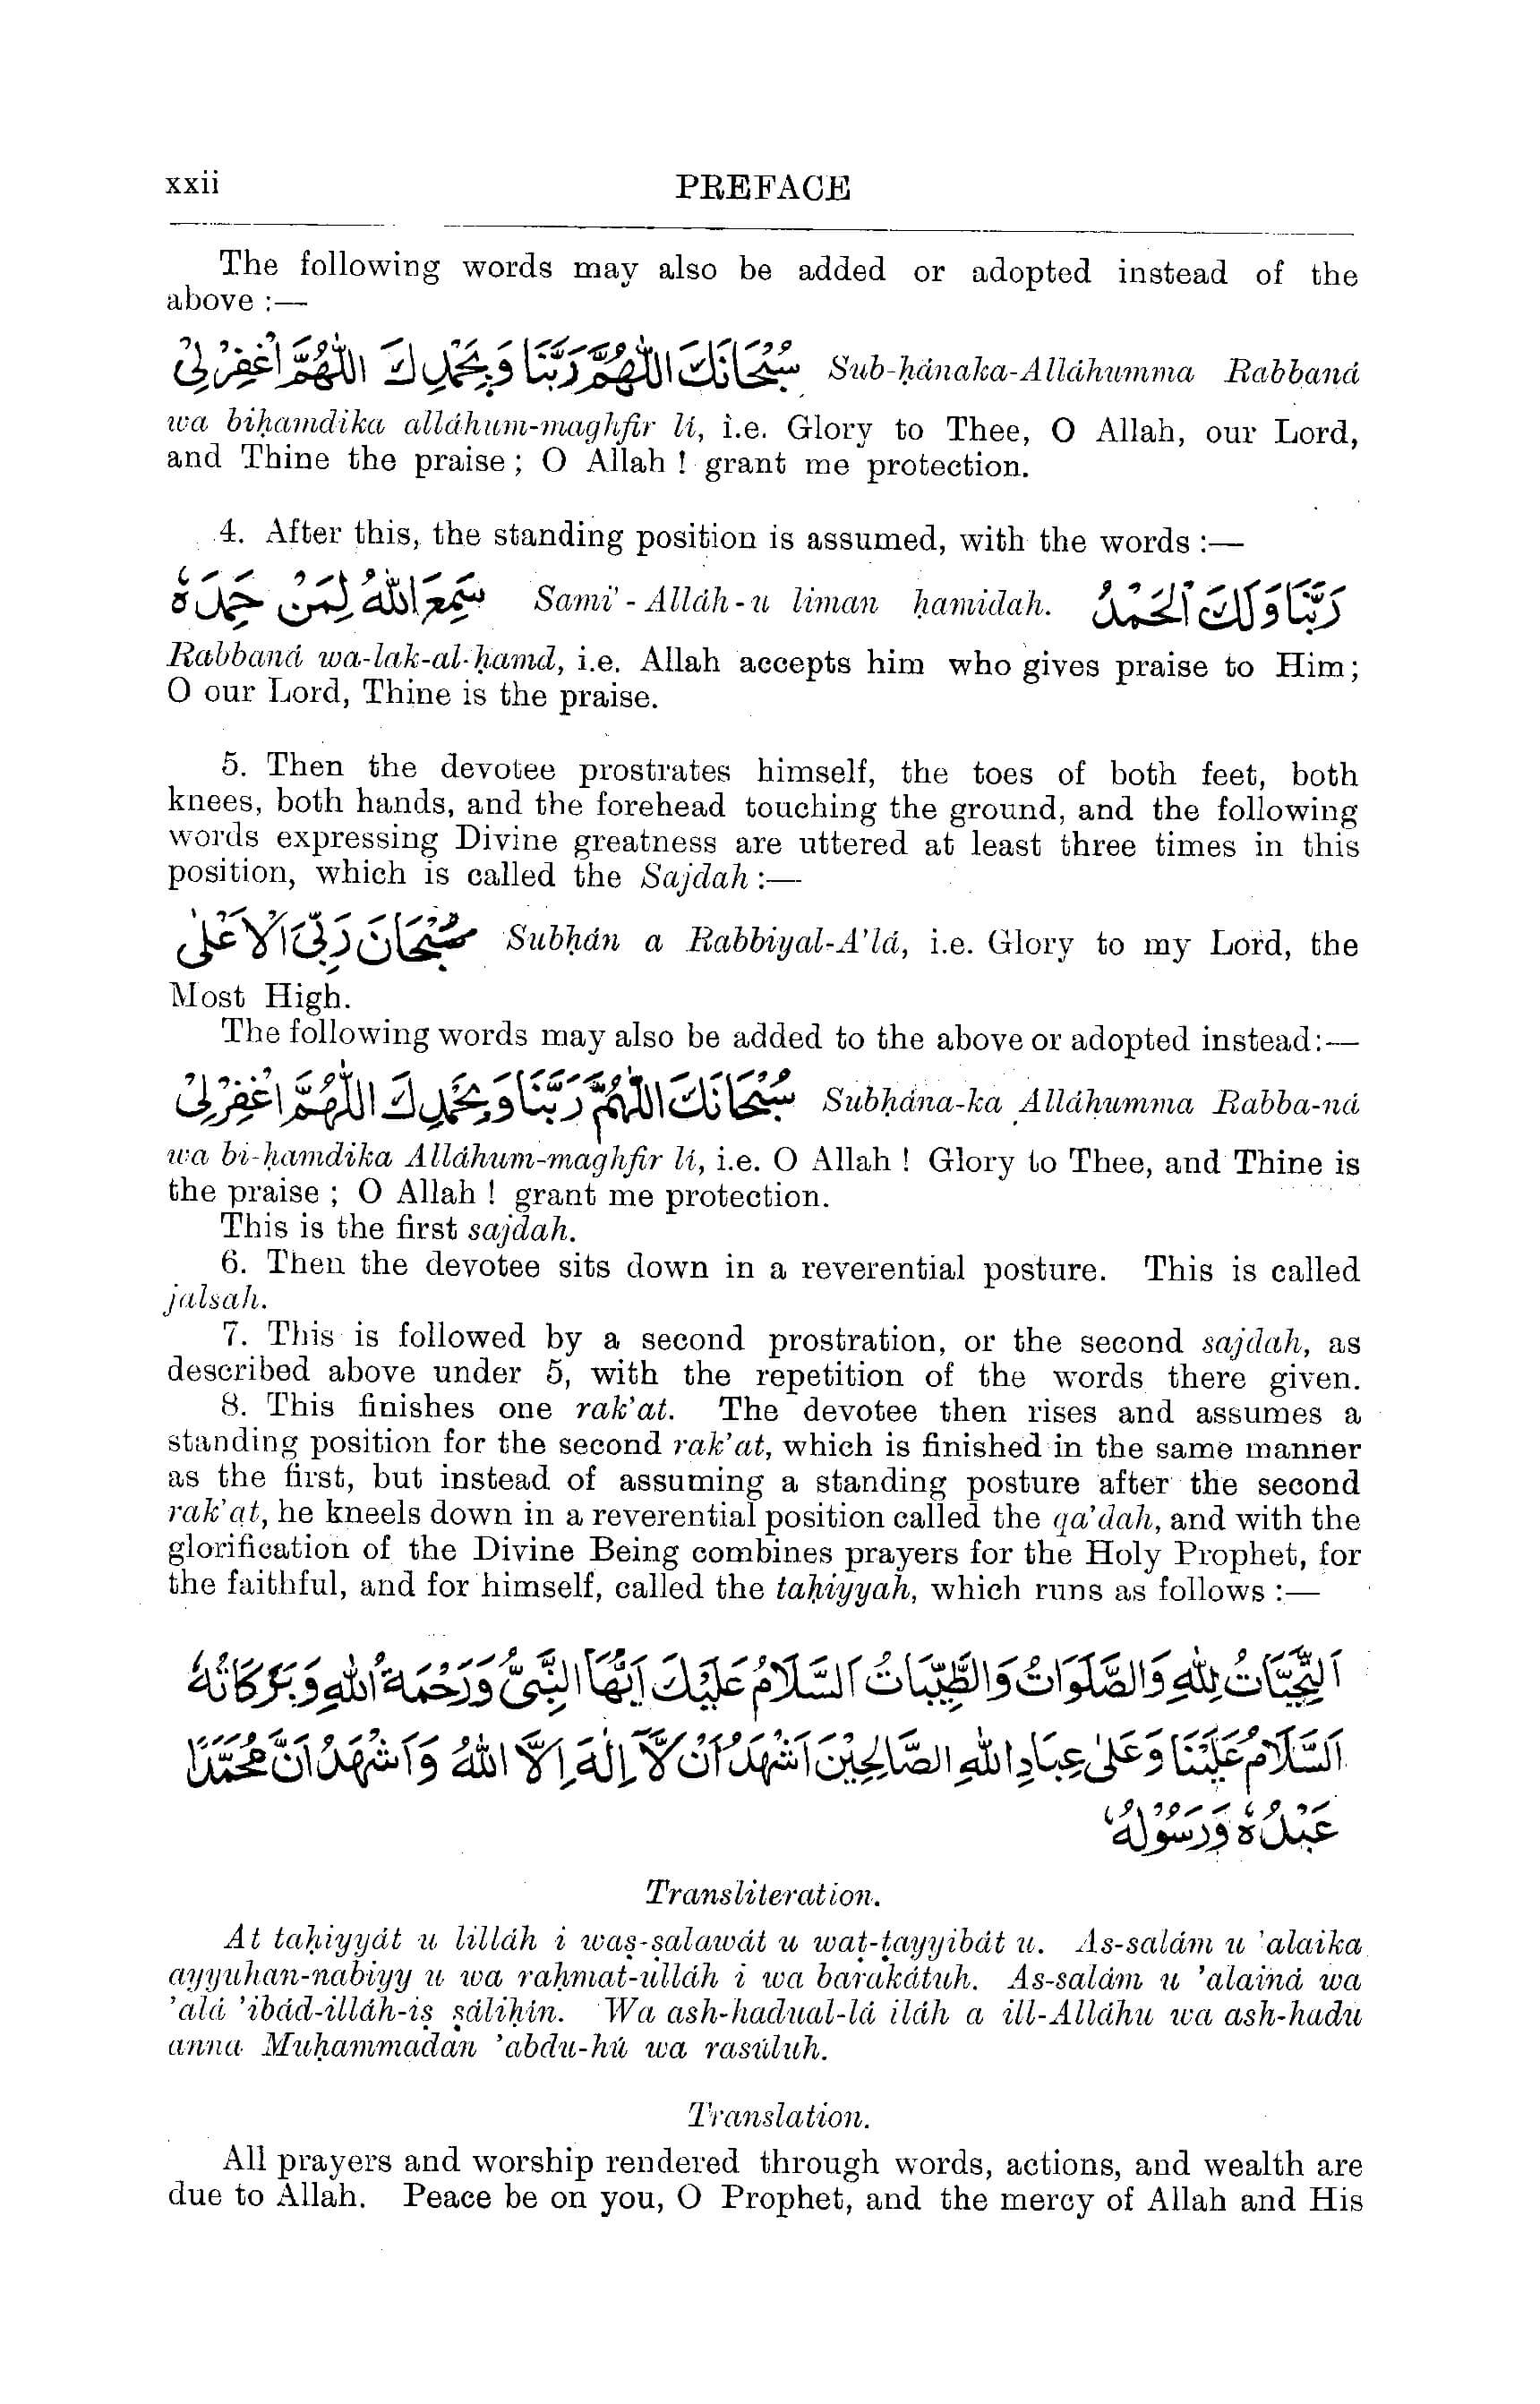 xxii PREFACE
The following words may also be added or adopted instead of the
above :—
سُبْحَانَكَ اللّٰهُمَّ رَبَّنَا وَبِحَمْدِكَ اللّٰهُمَّ اغْفِرْلِىْ Sub-ḥánaka-Alláhumma Rabbaná
wa biḥamdika alláhum-maghfir lí, i.e. Glory to Thee, O Allah, our Lord,
and Thine the praise; O Allah ! grant me protection.
4. After this, the standing position is assumed, with the words :—
سَمِعَ اللّٰهُ لِمَنْ حَمِدَهٗ Sami' - Alláh - u liman ḥamidah. رَبَّنَا وَلَكَ الْحَمْدُ
Rabbaná wa-lak-al-ḥamd, i.e. Allah accepts him who gives praise to Him;
O our Lord, Thine is the praise.
5. Then the devotee prostrates himself, the toes of both feet, both
knees, both hands, and the forehead touching the ground, and the following
words expressing Divine greatness are uttered at least three times in this
position, which is called the Sajdah :—
سُبْحَانَ رَبِّىَ الْاَعْلٰى Subḥán a Rabbiyal-A'lá, i.e. Glory to my Lord, the
Most High.
The following words may also be added to the above or adopted instead:—
سُبْحَانَكَ اللّٰهُمَّ رَبَّنَا وَبِحَمْدِكَ اللّٰهُمَّ اغْفِرْلِىْ Subḥána-ka Alláhumma Rabba-ná
wa bi-ḥamdika Alláhum-maghfir lí, i.e. O Allah ! Glory to Thee, and Thine is
the praise ; O Allah ! grant me protection.
This is the first sajdah.
6. Then the devotee sits down in a reverential posture. This is called
jalsah.
7. This is followed by a second prostration, or the second sajdah, as
described above under 5, with the repetition of the words there given.
8. This finishes one rak'at. The devotee then rises and assumes a
standing position for the second rak'at, which is finished in the same manner
as the first, but instead of assuming a standing posture after the second
rak'at, he kneels down in a reverential position called the qa'dah, and with the
glorification of the Divine Being combines prayers for the Holy Prophet, for
the faithful, and for himself, called the taḥiyyah, which runs as follows :—
اَلتَّحِيَّاتُ لِلّٰهِ وَالصَّلَوَاتُ وَالطَّيِّبَاتُ اَلسَّلَامُ عَلَيْكَ اَيُّهَا النَّبِىُّ وَرَحْمَةُ اللّٰهِ وَبَرَكَاتُهٗ
اَلسَّلَامُ عَلَيْنَا وَعَلٰى عِبَادِ اللّٰهِ الصَّالِحِيْنَ اَشْهَدُ اَنْ لَّآ اِلٰهَ اِلَّا اللّٰهُ وَاَشْهَدُ اَنَّ مُحَمَّدًا
عَبْدُهٗ وَرَسُوْلُهٗ
Transliteration.
At taḥiyyát u lilláh i waṣ-ṣalawát u waṭ-ṭayyibát u. As-salám u 'alaika
ayyuhan-nabiyy u wa raḥmat-ulláh i wa barakátuh. As-salám u 'alainá wa
'alá 'ibád-illáh-iṣ ṣáliḥín. Wa ash-hadual-lá iláh a ill-Alláhu wa ash-hadu
anna Muḥammadan 'abdu-hú wa rasúluh.
Translation.
All prayers and worship rendered through words, actions, and wealth are
due to Allah. Peace be on you, O Prophet, and the mercy of Allah and His